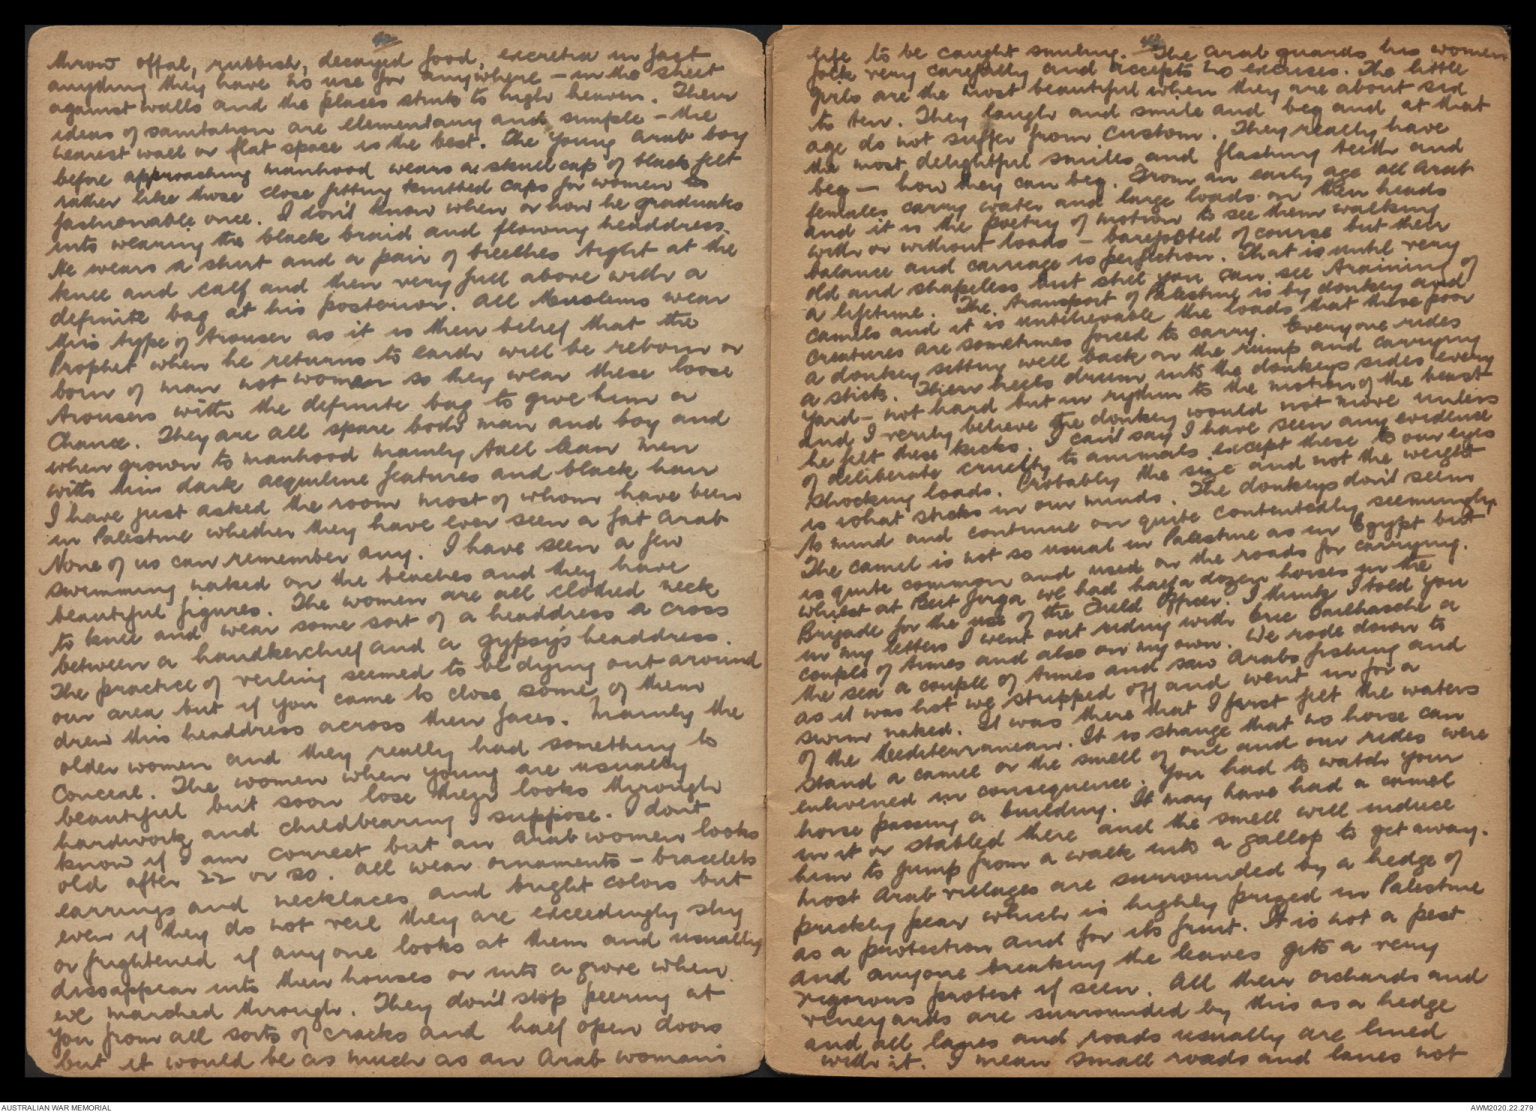 throw offal, rubbish, decayed food, excretia in fact
anything they have no use for anywhere – in the street
against walls and the places stinks to high heaven. Their
ideas of sanitation are elementary and simple – the
nearest wall or flat space is the best. The young Arab boy
before approaching manhood wears a skull cap of black felt
rather like those close fitting knitted caps for women so
fashionable once. I don't know when or how he graduates
into wearing the black braid and flowing headdress.
He wears a shirt and a pair of breeches tight at the
knee and calf and then very full above with a
definite bag at his posterior. All Muslems wear
this type of trouser as it is their belief that the
Prophet when he returns to earth will be reborn or
born of man not women so they wear these loose
trousers with the definite bag to give him a
chance. They are all spare body man and boy and
when grown to manhood mainly tall lean men
with thin dark acquiline features and black hair
I have just asked the room most of whom have been
in Palestine whether they have ever seen a fat Arab
None of us can remember any. I have seen a few
swimming naked on the beaches and they have
beautiful figures. The women are all clothed neck
to knee and wear some sort of a headdress a cross
between a handkerchief and a gypsy's headdress.
The practice of veiling seemed to be dying out around
our area but if you came to close some of them
drew this headdress across their faces. Mainly the
older women and they really had something to
conceal. The women when young are usually
beautiful but soon lose their looks through
hardwork and childbearing I suppose. I don't
know if I am correct but an Arab women looks
old after 22 or so. All wear ornaments – bracelets
earrings and necklaces and bright colors but
even if they do not veil they are exceedingly shy
or frightened if anyone looks at them and usually
dissappear into their houses or into a grove when
we marched through. They don't stop peering at
you from all sorts of cracks and half open doors
but it would be as much as an Arab woman's
life to be caught smiling. The Arab guards his women
folk very carefully and accepts no excuses. The little
girls are the most beautiful when they are about six
to ten. They laugh and smile and beg and at that
age do not suffer from custom. They really have
the most delightful smiles and flashing teeth and
beg – how they can beg. From an early age all Arab
females carry water and large loads on their heads
and it is the poetry of motion to see them walking
with or without loads – barefooted of course but their
balance and carriage is perfection. That is until very
old and shapeless but still you can see training of
a lifetime. The transport of Palestine is by donkey and
camels and it is unbelievable the loads that these poor
creatures are sometimes forced to carry. Everyone rides
a donkey sitting well back on the rump and carrying
a stick. Their heels drum into the donkeys sides every
yard – not hard but in rythm to the motion of the beast
and I verily believe the donkey would not move unless
he felt these kicks. I can't say I have seen any evidence
of deliberate cruelty to animals except these to our eyes
shocking loads. Probably the size and not the weight
is what sticks in our minds. The donkeys don't seem
to mind and continue on quite contentedly seemingly.
The camel is not so usual in Palestine as in Egypt but
is quite common and used on the roads for carrying.
Whilst at Beit Jirga we had half a dozen horses in the
Brigade for the use of the Field Officer. I think I told you
in my letters I went out riding with Eric Bailhache a
couple of times and also on my own. We rode down to
the sea a couple of times and saw Arabs fishing and
as it was hot we stripped off and went in for a
swim naked. It was there that I first felt the waters
of the Mediterranean. It is strange that no horse can
stand a camel or the smell of one and our rides were
enlivened in consequence. You had to watch your
horse passing a building. It may have had a camel
in it or stabled there and the smell will induce
him to jump from a walk into a gallop to get away.
Most Arab villages are surrounded by a hedge of
prickly pear which is highly prized in Palestine
as a protection and for its fruit. It is not a pest
and anyone breaking the leaves gets a very
vigorous protest if seen. All their orchards and
vineyards are surrounded by this as a hedge
and all lanes and roads usually are lined
with it. I mean small roads and lanes not
AUSTRALIAN WAR MEMORIAL
AWM2020.22.279